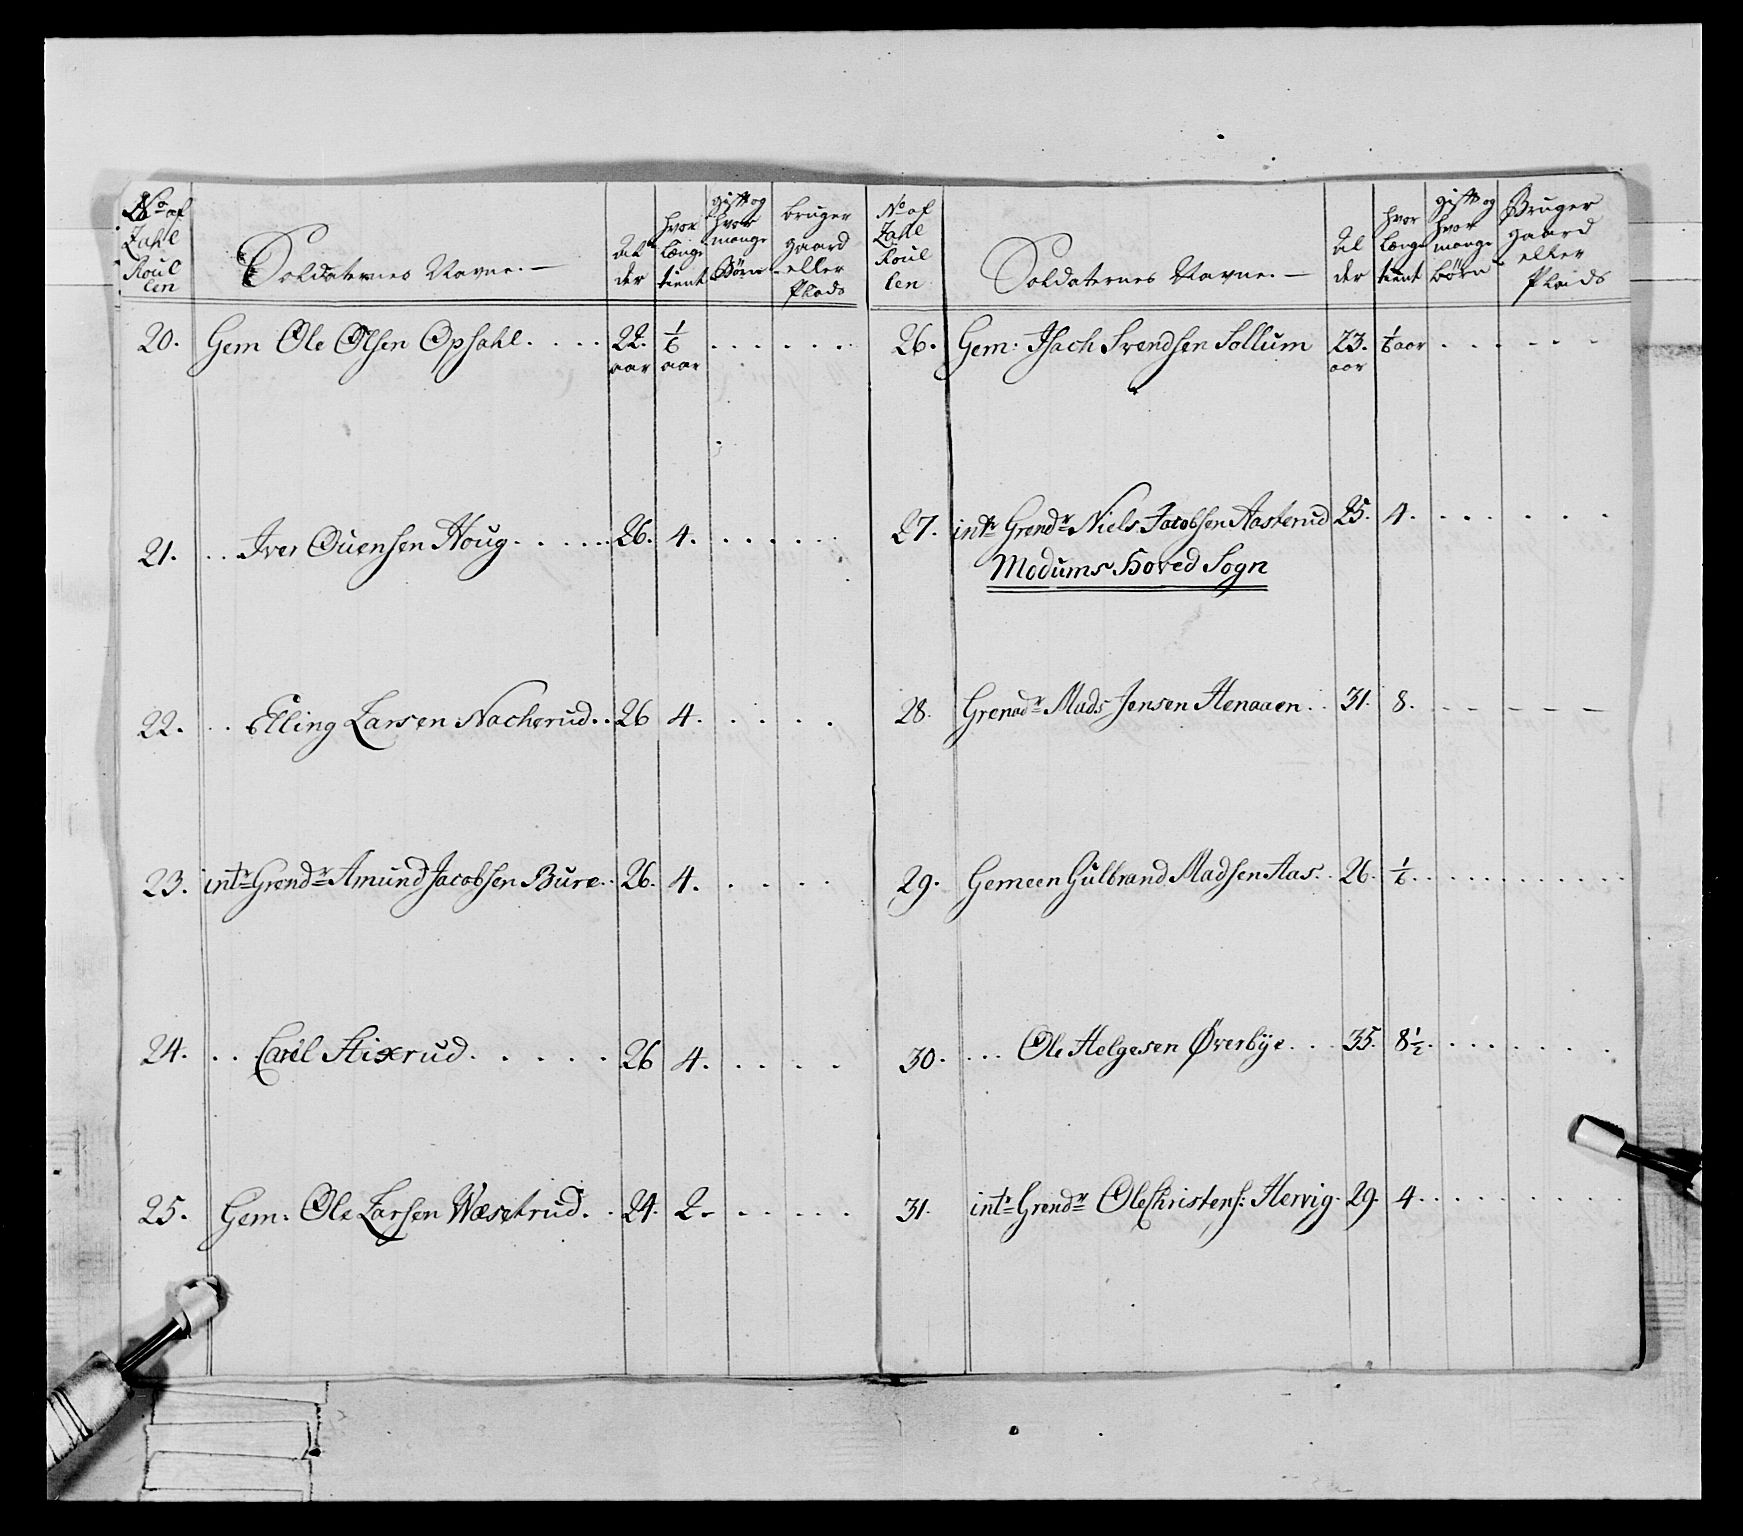 No af Zahl Roul len | Soldaternes Navne. — | Al der | hvor længe tient | gift og hvor mange Børn | bruger gaard eller Plads
20. Gem Ole Olsen Opsahl. . . . . 22. aar 1/6 aar . . . . . .
21. . . Iver Ouensen Houg. . . . . . 26. 4. . . . . . .
22. . . Elling Larsen Nacherud. . 26 4. . . . . .
23. intr Grendr Amund Jacobsen Bure. . 26. 4. . . . .
24. . . Carel Hixrud. . . . . . 26 4. . . . .
25. Gem. Ole Larsen Wæsetrud. . 24. 2. . . . . .
No af Zahl Roul len | Soldaternes Navne. — | Al der | hvor længe tient | gift og hvor mange børn | Bruger gaard eller Plads
26. Gem: Isach Svendsen Sollum 23. aar 1/6 aar . . . . . .
27. intr Grendr Niels Jacobsen Aasterud 25. 4. . . . . . .
Modums Hoved Sogn
28. Grenadr Mads Jensen Henaaen. . 31. 8. . . — — —
29. Gemeen Gulbrand Madsen Aas. . 26. 1/6. . . . . . . . . .
30. . . . Ole Helgesen Øverbÿe. . . 35. 8 1/2. . . . . . .
31. intr Grendr Ole Christens: Hervig. 29. 4. . . . . . . .